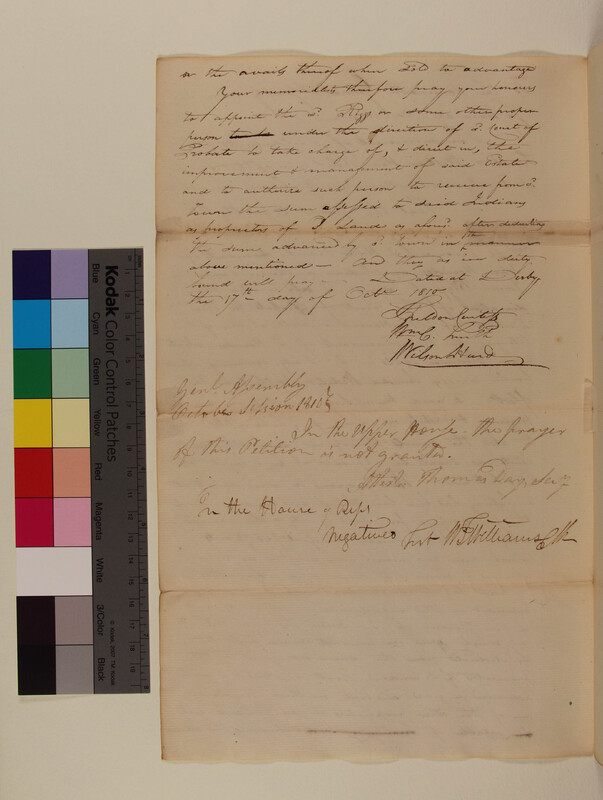 or the avails thereof when Sold to advantage
Your memorialists therefore pray your honours
to appoint the sd. Riggs or some other proper
person to be under the direction of sd. Court of
Probate to take charge of, & direct in, the
improvement & management of said Estate
and to authorize such person to receive from sd.
Town the sum assessed to said Indians
as proprietors of sd Land as above after deducting
the sum advanced by sd town in the manner
above mentioned — And they as in duty
bound will pray — Dated at Derby
the 17th day of Octr 1810
Sheldon Curtiss
Wm C. Smith
Wilson Hurd
Genl Assembly
October Session 1810
In the Upper House the prayer
of this Petition is not granted.
Attest Thomas Day, Secy
In the House of Reps
Negatived Test W Williams Clk
Kodak Color Control Patches
Blue
Cyan
Green
Yellow
Red
Magenta
White
3/Color
Black
© Kodak, 2007 TM: Kodak